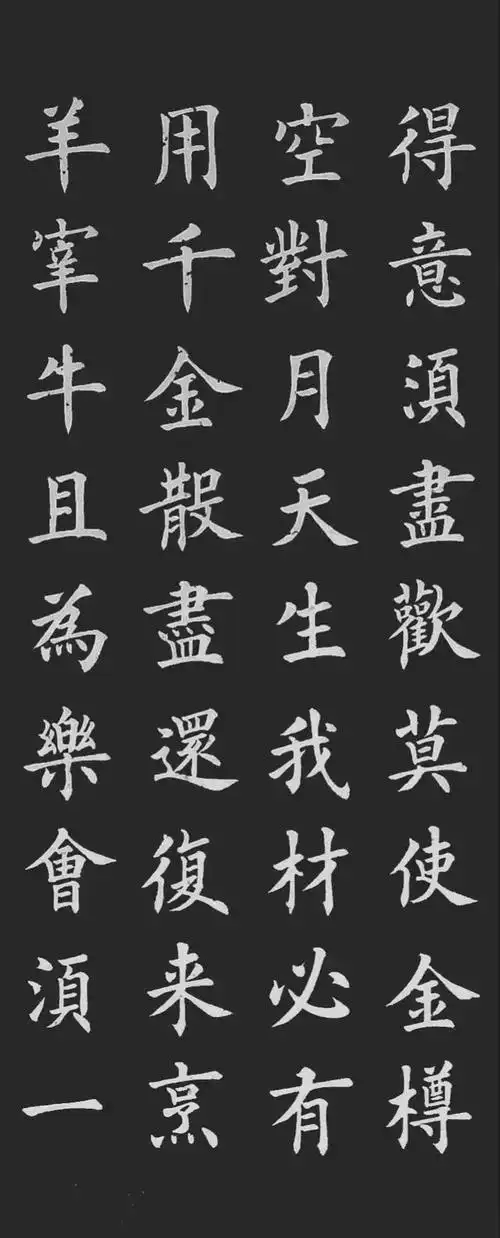 得意須盡歡莫使金樽
空對月天生我材必有
用千金散盡還復来烹
羊宰牛且為樂會須一